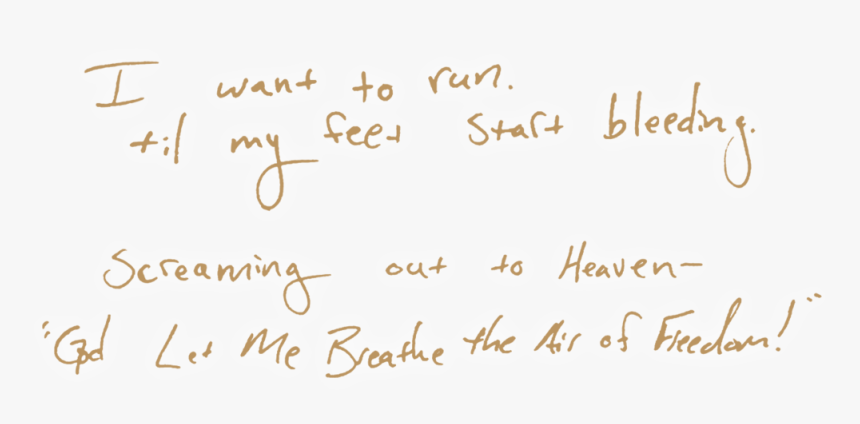 I want to run.
til my feet start bleeding.
Screaming out to Heaven-
"God Let Me Breathe the Air of Freedom!"